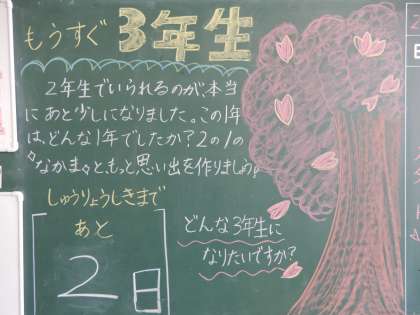 もうすぐ 3年生
2年生でいられるのが、本当
にあと少しになりました。この1年
は、どんな1年でしたか?2の1の
なかまと、もっと思い出を作りましょう。
しゅうりょうしきまで
あと
2日
どんな3年生に
なりたいですか?